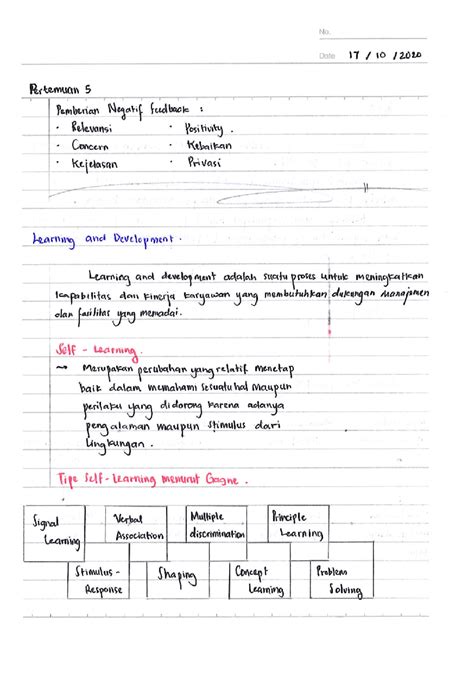 No.
Date 17 / 10 / 2020
Pertemuan 5
Pemberian Negatif feedback :
· Relevansi · Positivity .
· Concern · Kebaikan
· Kejelasan · Privasi
Learning and Development .
Learning and development adalah suatu proses untuk meningkatkan
kapabilitas dan kinerja karyawan yang membutuhkan dukungan manajemen
dan fasilitas yang memadai.
Self - Learning .
→ Merupakan perubahan yang relatif menetap
baik dalam memahami sesuatu hal maupun
perilaku yang didorong karena adanya
pengalaman maupun stimulus dari
lingkungan .
Tipe Self-Learning menurut Gagne .
Signal Learning
Verbal Association
Multiple discrimination
Principle Learning
Stimulus - Response
Shaping
Concept Learning
Problem Solving